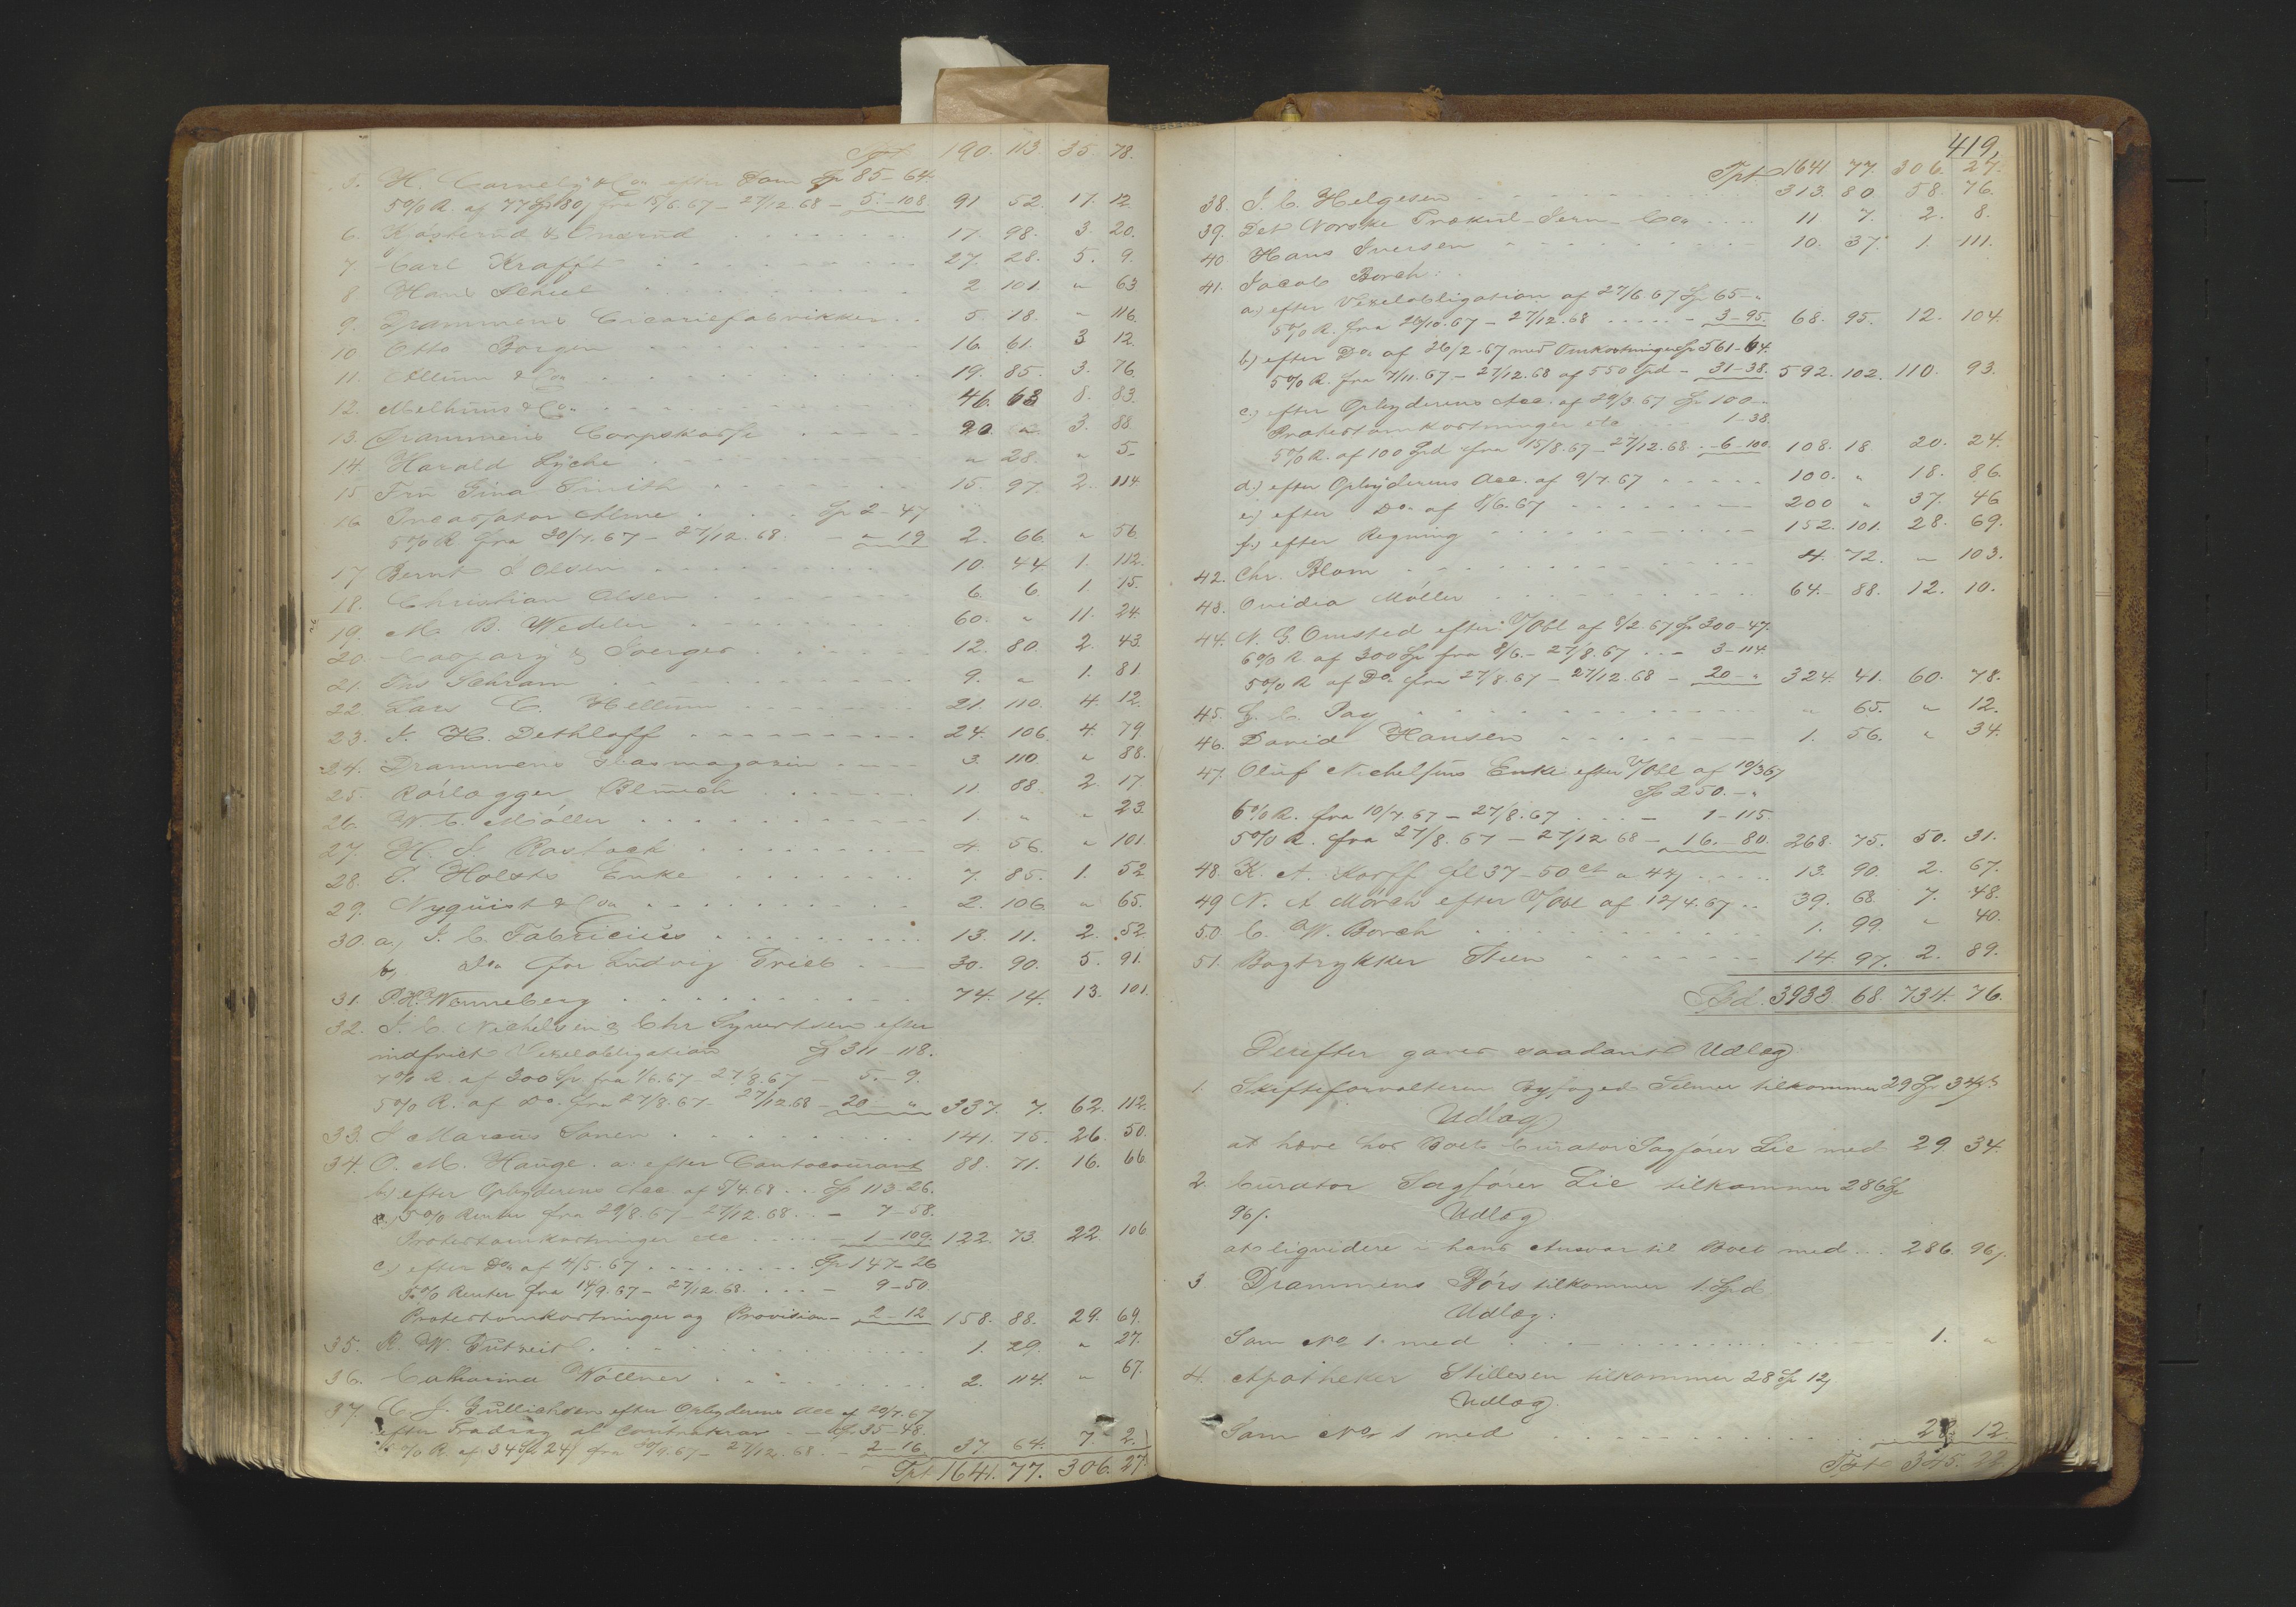 Tpt 190. 113. 35. 78.
5. H. Cornely & Co. efter Dom Sp 85–64.
5% R. af 77 Sp 80 fra 15/6.67 – 27/12.68 – 5.–108. 91 52. 17. 12.
6. & 17. 98. 3. 20.
7. Carl Krafft 27. 28. 5. 9.
8. Hans 2 101. " 63
9. Drammens Cicoriefabrikker 5. 18. – 116.
10. Otto Borgen 16. 61. 3 12.
11. Allum & Co. 19. 85. 3. 76.
12. Melhuus & Co. 46. 68 8. 83.
13. Drammens Corpskasse 20. " 3. 88.
14. Harald Lyche " 28. " 5–
15. Fru Gina Smith 15. 97. 2. 114.
16. Incassator Alme Sp 2–47
5% R fra 30/7.67 – 27/12.68. – " 19 2. 66. " 56.
17. Bernt J Olsen 10. 44 1. 112.
18. Christian Olsen 6. 6. 1. 15.
19. M. B. Wedeler 60. " 11. 24.
20. Caspary & 12. 80. 2. 43.
21. Ths Schram 9. " 1. 81.
22. Lars C. Hellum 21. 110. 4. 12.
23. J. H. Dethloff 24. 106. 4. 79
24. Drammens Glasmagazin 3. 110. " 88.
25. Rørlægger 11. 88. 2. 17.
26. W. C. Møller 1. " " 23.
27. H. J. Rostock 4. 56. " 101.
28. P. Holsts Enke 7. 85. 1. 52
29. Nyquist & Co. 2. 106. " 65.
30. a, J. C. Fabricius 13. 11. 2. 52.
b, Do. for Ludvig 30. 90. 5. 91.
31. P. H. Wenneberg 74. 14. 13. 101.
32. J. C. Michelsen & Chr Syvertsen efter
indfriet Vexelobligation Sp 311–118.
7% R. af 300 Sp fra 1/6.67 – 27/8.67 – 5.–9.
5% R. af Do. fra 27/8.67 – 27/12.68 – 20 – " 337. 7. 62. 112.
33. J Marcus 141. 75. 26. 50.
34. O. M. Hauge. a: efter Contocourant 88. 71. 16. 66.
b) efter Opbyderens Acc. af 5/4.68 . . Sp 113–26.
5% Renter fra 29/8.67 – 27/12.68 . . – 7–58.
Protestomkostninger etc – 1–109. 122. 73. 22. 106
c) efter Do. af 4/5.67 Sp 147–26
5% Renter fra 14/9.67 – 27/12.68. – 9–50.
Protestomkostninger og Provision – 2–12 158. 88. 29. 69.
35. R. W. 1. 29. " 27.
36. Catharina Wöllner 2. 114. " 67.
37. C. J. Gullichsen efter Opbyderens Acc af 20/7.67
efter Fradrag af – Sp 35–48.
5% R af 34 Sp 24 fra – 27/12.68. – 2–16. 37. 64. 7. 2.
Tpt 1641. 77. 306. 27.
419.
Tpt. 1641 77. 306. 27.
38. J. C. Helgesen 313. 80 58. 76.
39. Det Norske Trækul–Jern–Co. 11 7. 2. 8.
40. Hans Iversen 10. 37. 1. 111.
41. Jacob Borch:
a.) efter Vexelobligation af 27/6.67 Sp 65–"
5% R. fra 28/10.67 – 27/12.68 – 3–95. 68. 95. 12. 104.
b) efter Do. af 26/2.67 med Omkostninger Sp 561–64.
5% R. fra 7/11.67 – 27/12.68 af 550 Spd – 31–38. 592. 102. 110. 93.
c.) efter Opbyderens Acc. af 29/3.67 Sp 100–"
Protestomkostninger etc 1–38.
5% R. af 100 Spd fra 15/8.67 – 27/12.68. – 6–100. 108. 18 20. 24.
d.) efter Opbyderens Acc. af 9/7.67 100. " 18. 86.
e.) efter Do. af 8/6.67 200 " 37. 46
f.) efter Regning 152. 101. 28. 69.
42. Chr. Blom 4. 72. " 103.
43. Ovidia Møller 64. 88. 12. 10.
44. N. G. Omsted efter V/Obl af 8/2.67 Sp 300–47.
6% R. af 300 Sp fra 8/6. – 27/8.67 . . – 3–114.
5% R af Do. fra 27/8.67 – 27/12.68 – 20–" 324. 41. 60. 78.
45. G. C. Pay " 65. " 12.
46. David Hansen 1. 56. " 34.
47. Oluf Nichelsens Enke efter V/Obl af 10/3 67
Sp 250.–"
6% R. fra 10/7.67 – 27/8.67 . . . – 1–115.
5% R. fra 27/8.67 – 27/12 68 – 16.–80. 268. 75. 50. 31.
48. K. A. Korff fl 37–50 ct a 44 13. 90. 2. 67.
49 N. A Mørch efter V/Obl af 12/4.67 . . 39. 68. 7. 48.
50. C. W. Borch 1. 99. " 40.
51. Bogtrykker Steen 14. 97. 2. 89.
Spd. 3933 68. 734. 76.
Derefter gøres saadant Udlæg
1. Skifteforvalteren Byfoged Selmer tilkommer 29 Sp 34 s
Udlæg
at hæve hos Boets Curator Sagfører Lie med 29 34.
2. Curator Sagfører Lie tilkommer 286 Sp
96 s.
Udlæg
at liqvidere i hans Ansvar til Boet med . . . 286. 96.
3 Drammens Børs tilkommer 1 Spd
Udlæg:
Som No. 1. med 1. "
4. Apotheker Stillesen tilkommer 28 Sp 12
Udlæg.
Som No. 1 med 28. 12.
Tpt 345. 22